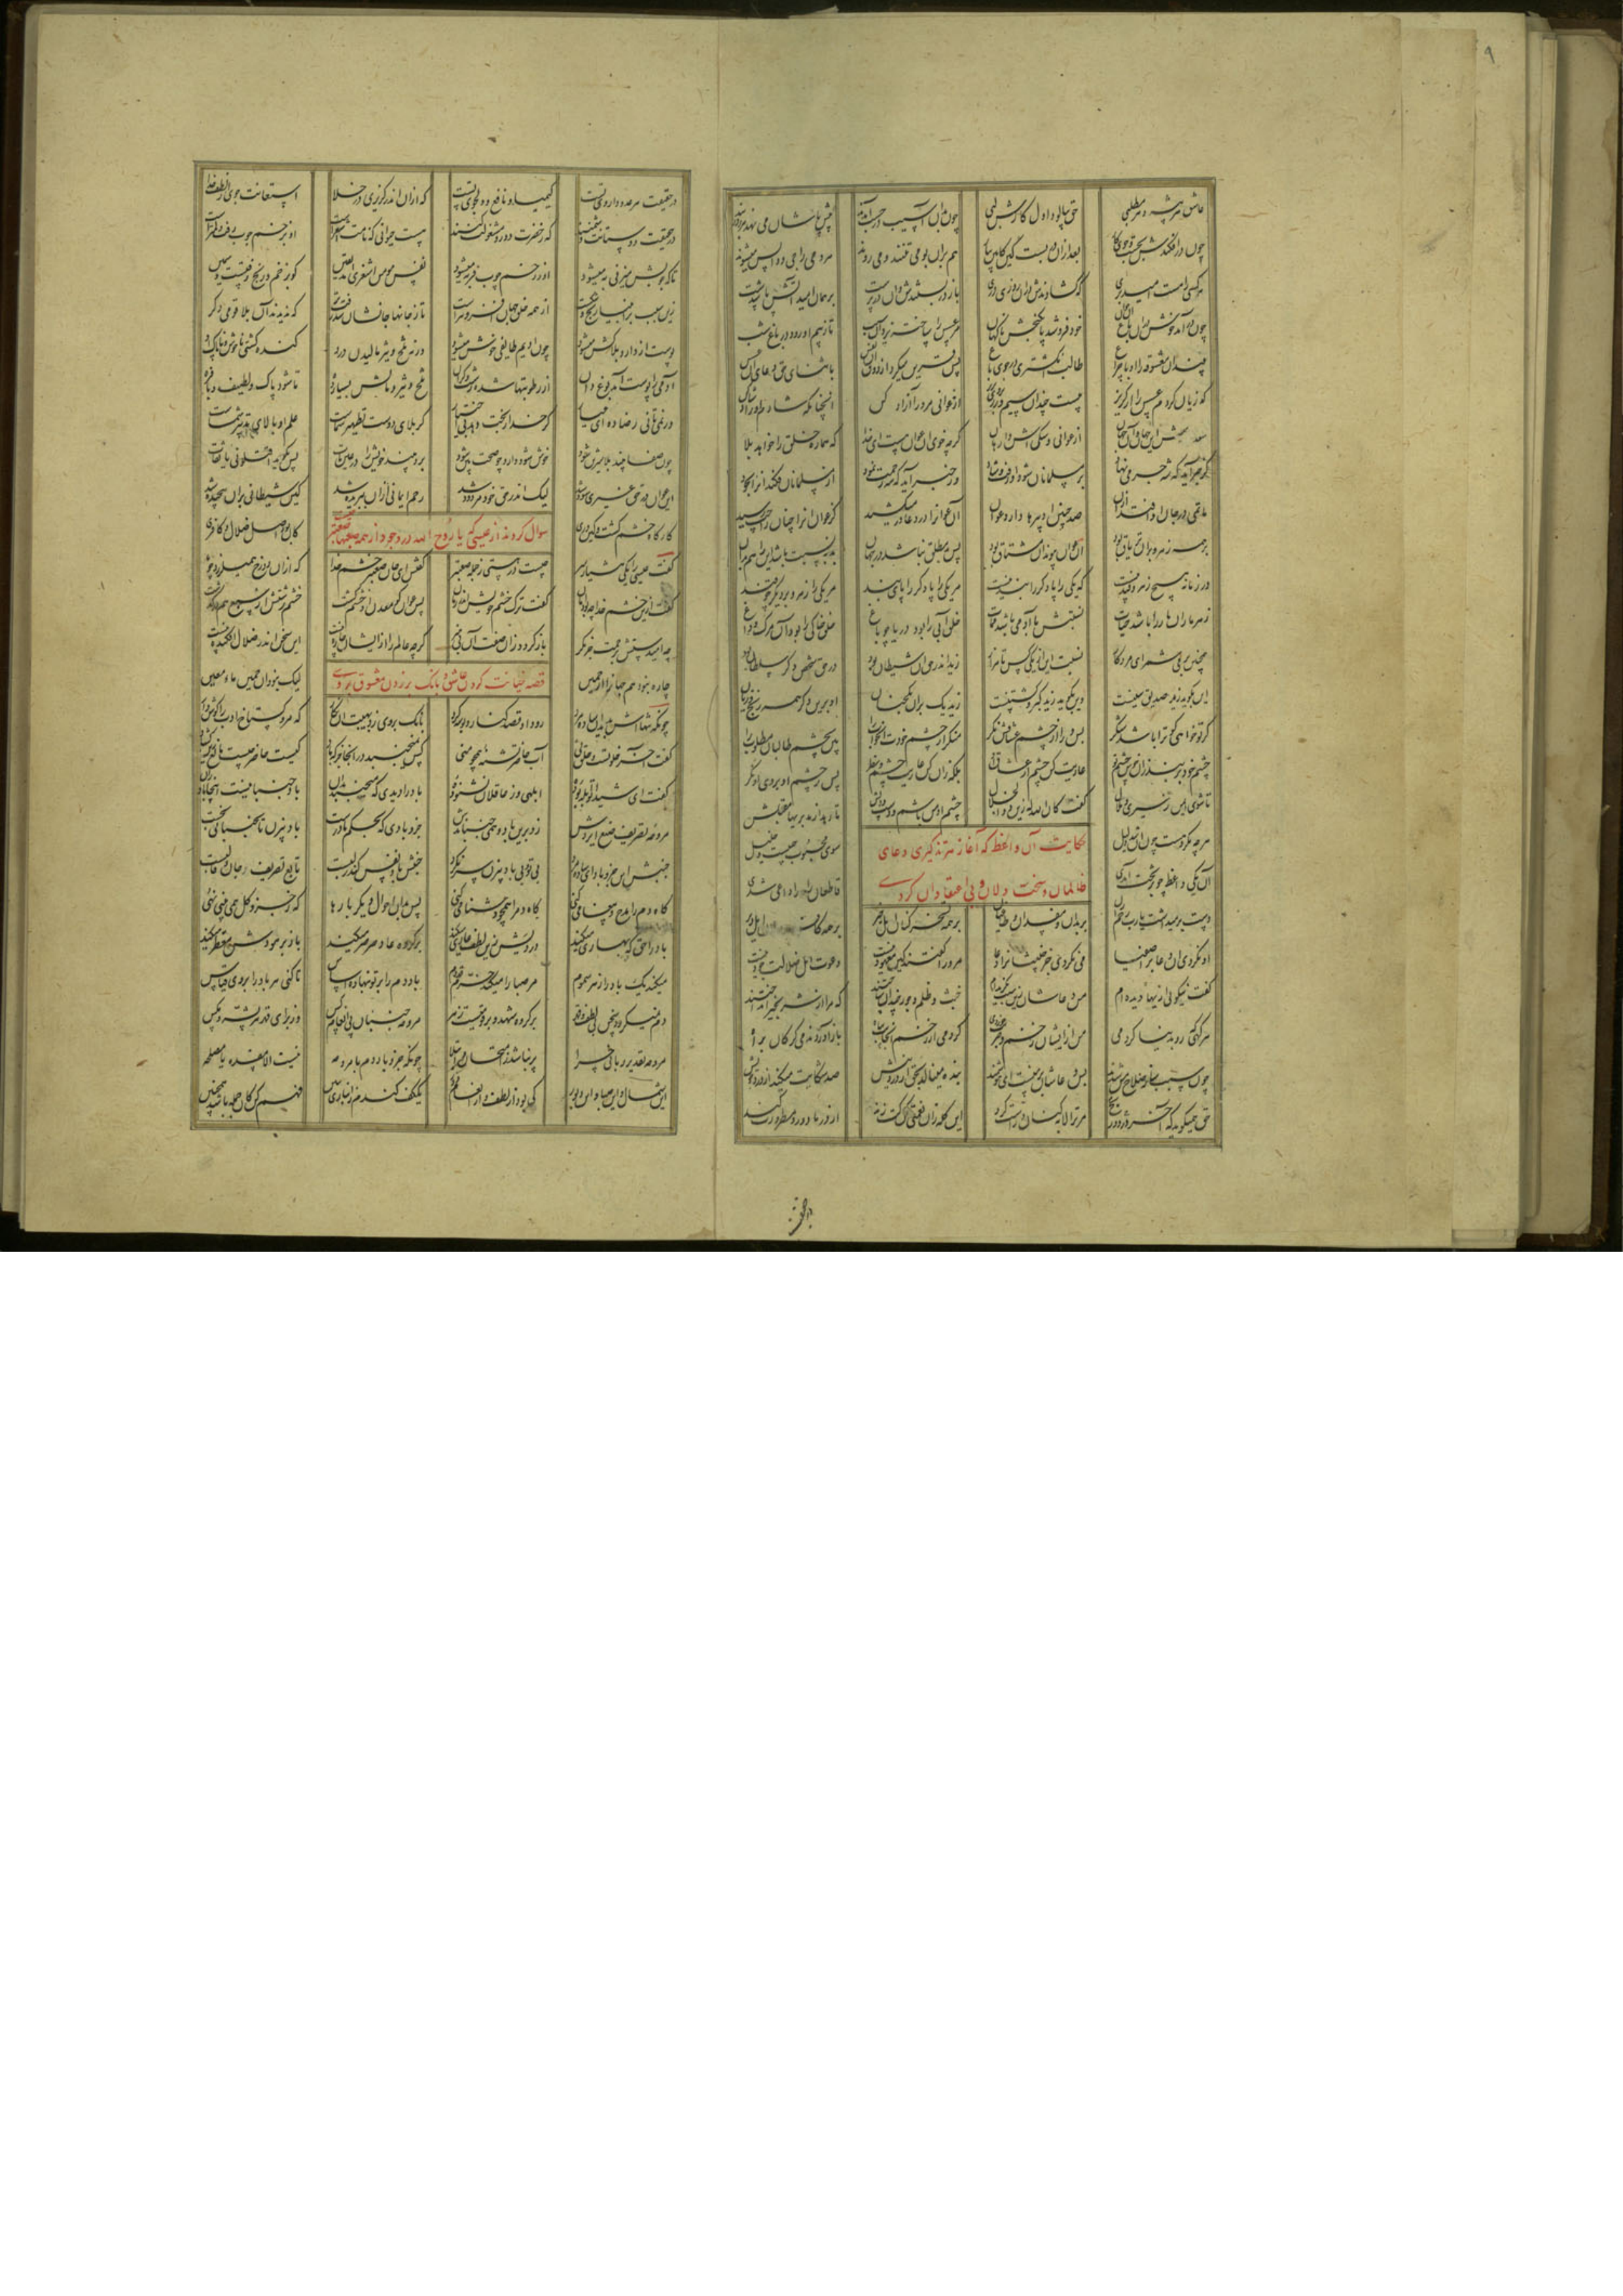 عاشق هر پیشه و هر مطلبی حق بیالود اول کارش لبی چون بدان آسیب در جست آمدند پیش پاشان می نهد هر روز بند
چون درافکندش بجست و جوی کار بعد ازان در بست که کابین بیار هم بران بو می تنند و می روند هر دمی راجی و آیس میشوند
هر کسی را هست امید بری که گشادندش دران روزی دری باز در بستندش و آن درپرست بر همان امید آتش پا شدست
چون درآمد خوش دران باغ آن جوان خود فرو شد پا بگنجش ناگهان مر عسس را ساخته یزدان سبب تا ز بیم او دود در باغ شب
بیند آن معشوقه را او با چراغ طالب انگشتری در جوی باغ پس قرین میکرد از ذوق آن نفس با ثنای حق دعای آن عسس
که زیان کردم عسس را از گریز بیست چندان سیم و زر بر وی بریز از عوانی مر ورا آزاد کن آنچنانکه شادم او را شاد کن
سعد دارش این جهان و آن جهان از عوانی و سگی اش وارهان گرچه خوی آن عوان هست ای خدا که هماره خلق را خواهد بلا
گر خبر آید که شه جرمی نهاد بر مسلمانان شود او زفت و شاد ور خبر آید که شه رحمت نمود از مسلمانان فکند آنرا بجود
ماتمی در جان او افتد ازان صد چنین ادبیرها دارد عوان آن عوانرا در دعا در میکشید کز عوان او را چنان راحت رسید
بر همه زهر و برو تریاق بود آن عوان پیوند آن مشتاق بود پس بد مطلق نباشد در جهان بد بنسبت باشد این را هم بدان
در زمانه هیچ زهر و قند نیست که یکی را پا دگر را بند نیست مر یکی را پا دگر را پای بند مر یکی را زهر و بر دیگر چو قند
زهر مار آن مار را باشد حیات نسبتش با آدمی باشد ممات خلق آبی را بود دریا چو باغ خلق خاکی را بود آن مرگ و داغ
همچنین بر می شمر ای مرد کار نسبت این از یکی کس تا هزار زید اندر حق آن شیطان بود در حق شخصی دگر سلطان بود
این بگوید زید صدیق سنیست وین بگوید زید گبر کشتنیست زید یک ذاتست بران یک جنان او برین دیگر همه رنج و زیان
گر تو خواهی کو ترا باشد شکر پس ورا از چشم عشاقش نگر منگر از چشم خودت آن خوب را بین بچشم طالبان مطلوب را
چشم خود بر بند زان خوش چشم تو عاریت کن چشم از عشاق او بلکه زان کن عاریت چشم و نظر پس ز چشم او بروی او نگر
تا شوی ایمن ز سیری و ملال گفت کان الله له زین ذوالجلال چشم او من باشم و دست و دلش تا رهد از مدبریها مقبلش
هر چه مکروهست چون او شد دلیل سوی محبوبت حبیبست و خلیل
حکایت آن واعظ که آغاز هر تذکیری دعای
ظالمان و سخت دلان و بی اعتقادان کردی
آن یکی واعظ چو بر تخت آمدی قاطعان راه را داعی شدی
دست برمیداشت یارب رحم ران بر بدان و مفسدان و طاغیان بر همه تسخرکنان اهل خیر بر همه کافر دلان و اهل دیر
او نکردی آن دعا بر اصفیا می نکردی جز خبیثانرا دعا مرورا گفتند کین معهود نیست دعوت اهل ضلالت جود نیست
گفت نیکویی ازینها دیده ام من دعاشان زین سبب بگزیده ام خبث و ظلم و جور چندان ساختند که مرا از شر بخیر انداختند
هر گهی که رو بدنیا کردمی من ازیشان زخم و ضربت خوردمی کردمی از زخم آنجانب پناه باز آوردندمی گرگان براه
چون سبب ساز صلاح من شدند پس دعاشان بر منست ای هوشمند بنده مینالد بحق از درد و نیش صد شکایت میکند از درد خویش
حق همیگوید که آخر رنج و درد مر ترا لابه کنان و راست کرد این گله زان نعمتی کن کت زند از در ما دور و مطرودت کند
در حقیقت
در حقیقت هر عدو داروی تست کیمیا و نافع و دلجوی تست که ازان اندر گریزی در خلا استعانت جویی از لطف خدا
در حقیقت دوستانت دشمنند که ز حضرت دور و مشغولت کنند هست حیوانی که نامش اشغرست او بزخم چوب زفت و لمترست
تا که چوبش میزنی به میشود او ز زخم چوب فربه میشود نفس مومن اشغری آمد یقین کو بزخم رنج زفتست و سمین
زین سبب بر انبیا رنج و شکست از همه خلق جهان افزونترست تا ز جانها جانشان شد زفت تر که ندیدند آن بلا قوم دگر
پوست از دارو بلاکش میشود چون ادیم طایفی خوش میشود ورنه تلخ و تیز مالیدن درو گنده گشتی ناخوش و ناپاک بو
آدمی را پوست نامدبوغ دان از رطوبتها شده زشت و گران تلخ و تیز و مالش بسیار ده تا شود پاک و لطیف و بافره
ور نمی تانی رضا ده ای عیار گر خدا رنجت دهد بی اختیار که بلای دوست تطهیر شماست علم او بالای تدبیر شماست
چون صفا بیند بلا شیرین شود خوش شود دارو چو صحت بین شود برد بیند خویش را در عین مات پس بگوید اقتلونی یا ثقات
این عوان در حق غیری سود شد لیک اندر حق خود مردود شد رحم ایمانی ازان ببریده شد کین شیطانی بران پیچیده شد
کارگاه خشم گشت و کین وری کینه دان اصل ضلال و کافری
سوال کردند از عیسی که یا روح الله در وجود از همه صعبها صعبتر چیست
گفت عیسی را یکی هشیار سر چیست در هستی ز جمله صعبتر گفتش ای جان صعبتر خشم خدا که ازان دوزخ همی لرزد چو ما
گفت ازین خشم خدا چبود امان گفت ترک خشم خویش اندر زمان پس عوان که معدن این خشم گشت خشم زشتش از سبع هم درگذشت
چه امیدستش برحمت جز مگر باز گردد زان صفت آن بی هنر گرچه عالم را ازیشان چاره نیست این سخن اندر ضلال افگندنیست
چاره نبود هم جهانرا از چمین لیک نبود آن چمین ماء معین
قصه خیانت کردن عاشق و بانگ بر زدن معشوق بر وی
چونکه تنهااش بدید آن ساده مرد زود او قصد کنار و بوسه کرد بانگ بر وی زد بهیبت آن نگار که مرو گستاخ ادب را هوش دار
گفت آخر خلوتست و خلق نی آب حاضر تشنه همچو منی کس نمیجنبد درینجا جز که باد کیست حاضر کیست مانع زین گشاد
گفت ای شیدا تو ابله بوده ای ابلهی وز عاقلان نشنوده ای باد را دیدی که میجنبد بدان بادجنبانیست اینجا بادران
مروحه تصریف صنع ایزدش زد برین باد و همی جنباندش جزو بادی که بحکم ما درست بادبیزن تا نجنبانی نجست
جنبش این جزو باد ای ساده مرد بی تو و بی بادبیزن سر نکرد جنبش باد نفس کاندر لبست تابع تصریف جان و قالبست
گاه دم را مدح و پیغامی کنی گاه دم را هجو و دشنامی کنی پس بدان احوال دیگر بادها که ز جزوی کل همی بیند نهی
باد را حق گه بهاری میکند در دیش زین لطف عاری میکند بر گروه عاد صرصر میکند باز بر هودش معطر میکند
میکند یک باد را زهر سموم مر صبا را میکند خرم قدوم باد دم را بر تو بنهاد او اساس تا کنی هر باد را بر وی قیاس
دم نمیگردد سخن بی لطف و قهر بر گروهی شهد و بر قومیست زهر مروحه جنبان پی انعام کس وز برای قهر هر پشه و مگس
مروحه تقدیر ربانی چرا پر نباشد ز امتحان و ابتلا چونکه جزو باد دم یا مروحه نیست الا مفسده یا مصلحه
این شمال و این صبا و این دبور کی بود از لطف و از انعام دور یک کف گندم ز انباری ببین فهم کن کان جمله باشد همچنین